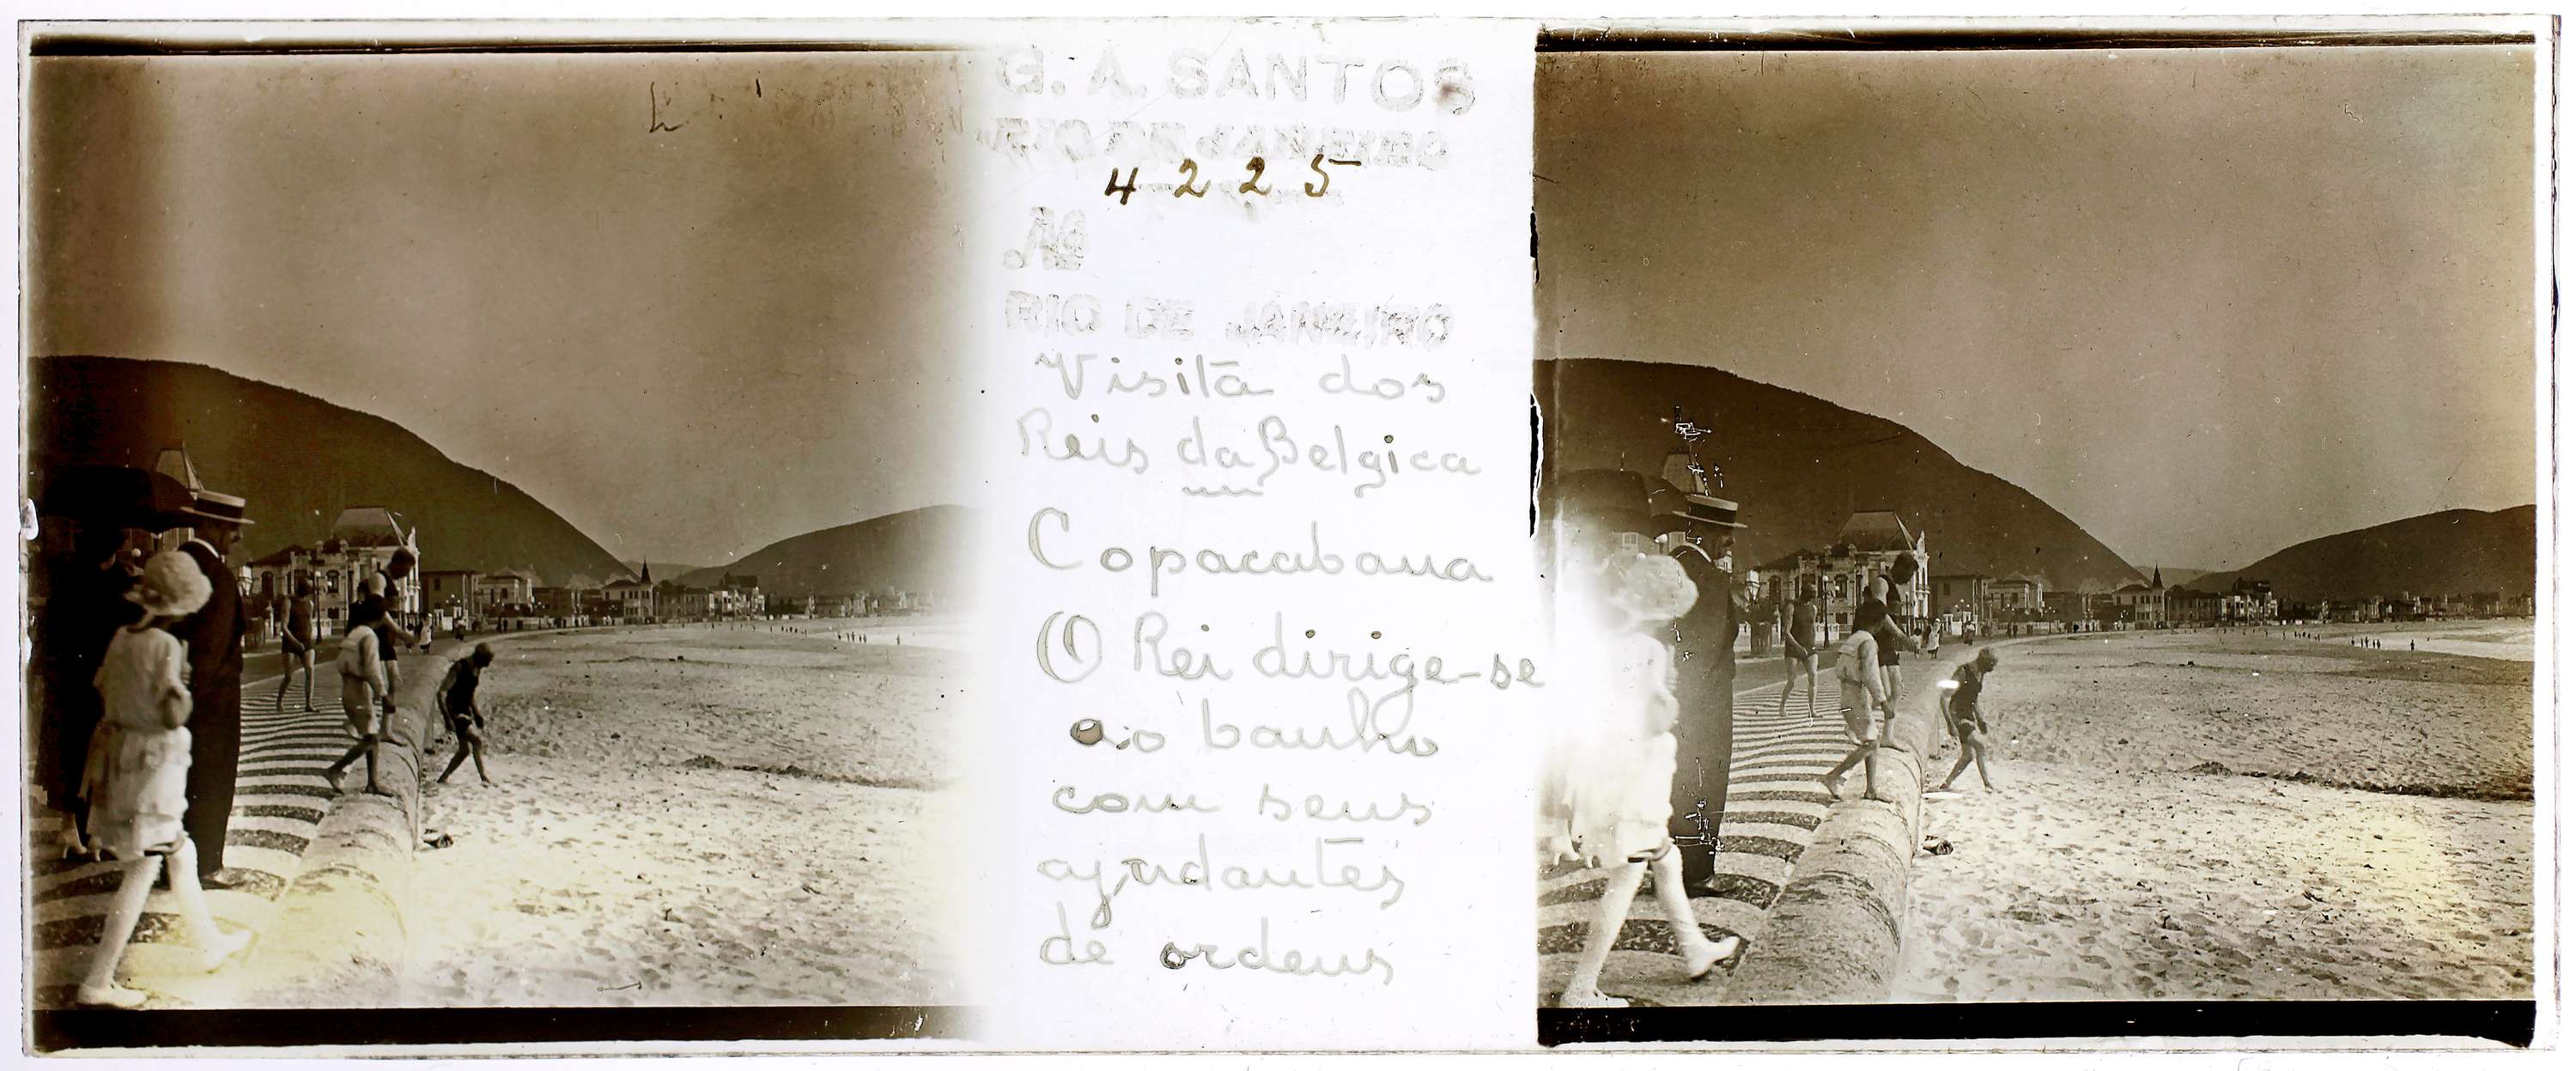 G. A. SANTOS
RIO DE JANEIRO
4225
RIO DE JANEIRO
Visita dos
Reis da Belgica
Copacabana
O Rei dirige-se
ao banho
com seus
ajudantes
de ordens